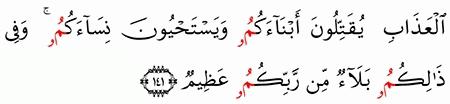 ٱلۡعَذَابِ يُقَتِّلُونَ أَبۡنَآءَكُمُۥ وَيَسۡتَحۡيُونَ نِسَآءَكُمُۥۚ وَفِي
ذَٰلِكُمُۥ بَلَآءٞ مِّن رَّبِّكُمُۥ عَظِيمٞ ﴿١٤١﴾